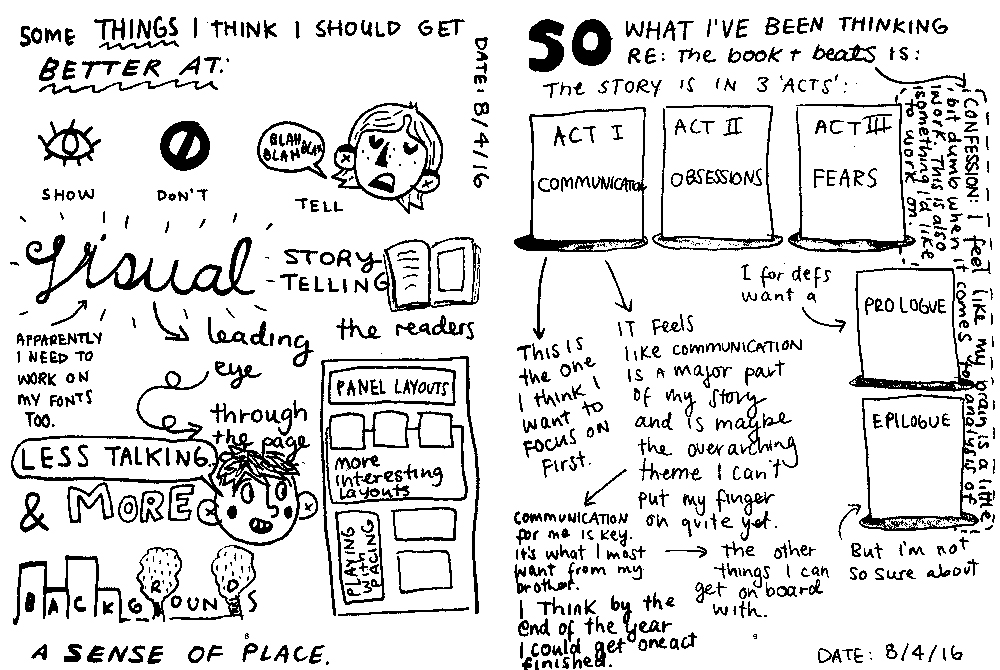 SOME THINGS I THINK I SHOULD GET
BETTER AT:
DATE: 8/4/16
SHOW
DON'T
BLAH
BLAH BLAH
TELL
Visual
STORY
TELLING
APPARENTLY
I NEED TO
WORK ON
MY FONTS
TOO.
leading
eye
through
the page
the readers
PANEL LAYOUTS
more
interesting
layouts
PLAYING
with
SPACING
LESS TALKING
& MORE
BACKGROUNDS
A SENSE OF PLACE.
SO WHAT I'VE BEEN THINKING
RE: The book + beats IS:
The STORY IS IN 3 'ACTS':
ACT I
COMMUNICATION
ACT II
OBSESSIONS
ACT III
FEARS
CONFESSION: I feel like my brain is a little
bit dumb when it comes to analysis of
work. This is also
something I'd like
to work on.
I for defs
want a
PROLOGUE
EPILOGUE
But I'm not
so sure about
This is
the one
I think I
want to
FOCUS ON
First.
IT Feels
like COMMUNICATION
IS a major part
of my story
and is maybe
the overarching
theme I can't
put my finger
on quite yet.
COMMUNICATION
for me is key.
It's what I most
want from my
brother.
the other
things I can
get on board
with.
I Think by the
end of the year
I could get one act
finished.
DATE: 8/4/16